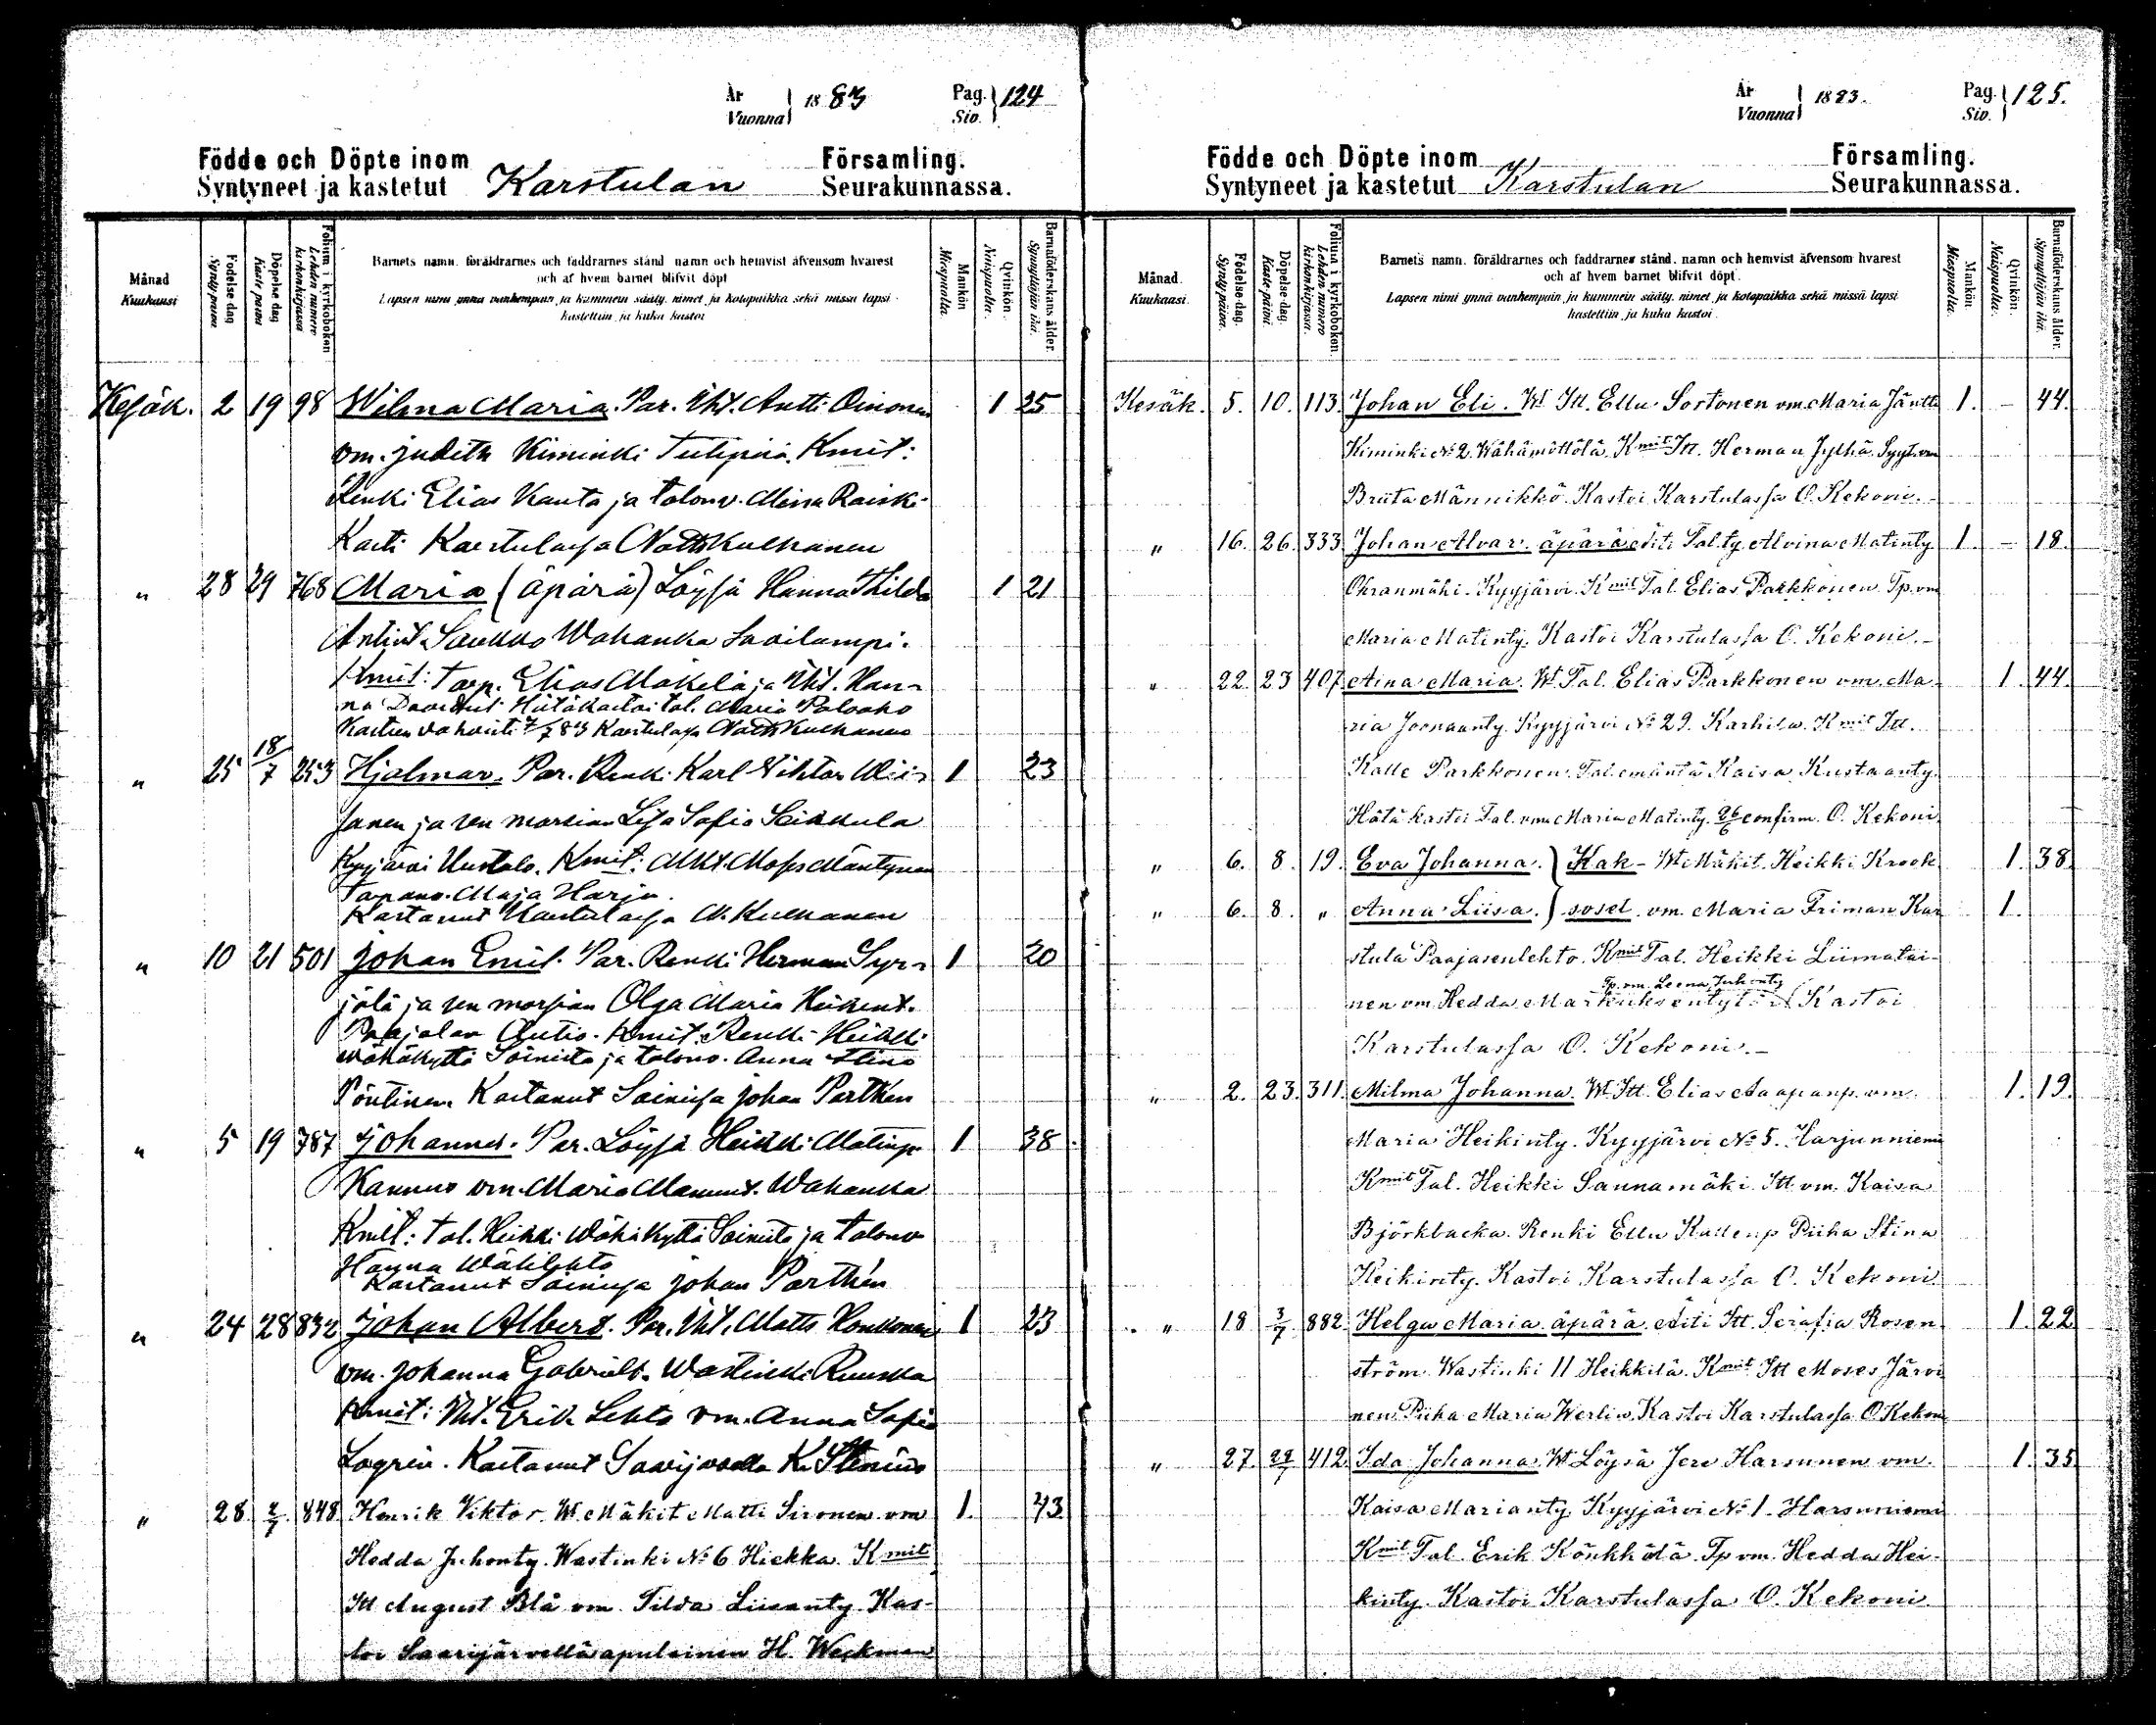 År Vuonna 1883 Pag. Siv. 124
Födde och Döpte inom Församling.
Syntyneet ja kastetut Karstulan Seurakunnassa.
Månad Kuukausi
Födelse dag Synty päivä
Döpelse dag Kaste päivä
Folium i kyrkoboken Lehden numero kirkonkirjassa
Barnets namn. föräldrarnes och faddrarnes stånd namn och hemvist äfvensom hvarest
och af hvem barnet blifvit döpt
Lapsen nimi ynnä vanhempain ja kummein sääty. nimet ja kotopaikka sekä missä lapsi
kastettiin ja kuka kastoi
Mankön Miespuolta.
Qvinkön. Naispuolta.
Barnaföderskans ålder. Synnyttäjän ikä.
Kesäk. 2 19 98 Wilma Maria. Par. Itt. Antti Oinonen 1 25
vm. Judith Kiminki Kmit:
Renki Elias Kauto ja talonv. Miina Raiski
Kasti Karstulassa Matts Kulhanen
" 28 29 768 Maria (äpärä) Löysä Hanna Thilda 1 21
Antint. Saukko Wahanka Saoilampi.
Kmit: Torp. Elias Mäkelä ja Itt. Han-
na Hätäkastoi tal. Maria Paloaho
Kasteen vahvisti 7/7 83 Karstulassa Matts Kulhanen
" 25 18/7 253 Hjalmar. Par. Renki Karl Viktor Wii- 1 23
sanen ja sen morsian Lisa Sofia Leikkula
Kyyjärvi Uustalo. Kmit: Mkt. Moses Mäntynen
Tarpanv. Maja Harju.
Kastanut Karstulassa M. Kulhanen
" 10 21 501 Johan Emil. Par. Renki Herman Syr- 1 20
jälä ja sen morsian Olga Maria Heikint.
Paajalan Autio. Kmit: Renki Heikki
Wähäkyttä Soinista ja talonv. Anna Stina
Pöntinen. Kastanut Soinissa Johan Parthen
" 5 19 787 Johannes. Par. Löysä Heikki Matinp. 1 38
Kannus vm. Maria Wahanka
Kmit: Tal. Heikki Wähäkyttä Soinista ja talonv
Hanna Wählehto
Kastanut Soinissa Johan Parthén
" 24 28 832 Johan Albert. Par. Itt. Matts Honkonen 1 23
vm. Johanna Gabrielt. Wastinki Ruuska
Kmit: Itt. Erik Lehto vm. Anna Sofia
Logren. Kastanut Saarijärvellä K. Stenius
" 28 2/7 848 Henrik Viktor. Wt. Mäkit Matti Sironen vm 1. 43
Hedda Juhonty. Wastinki No 6 Hiekka. Kmit
Itt August Blå vm. Tilda Liisanty. Kas-
toi Saarijärvellä apulainen H. Weckman
År Vuonna 1883. Pag. Siv. 125.
Födde och Döpte inom Församling.
Syntyneet ja kastetut Karstulan Seurakunnassa.
Månad. Kuukausi.
Födelse dag. Synty päivä.
Döpelse dag. Kaste päivä.
Folium i kyrkoboken. Lehden numero kirkonkirjassa.
Barnets namn. föräldrarnes och faddrarnes stånd. namn och hemvist äfvensom hvarest
och af hvem barnet blifvit döpt.
Lapsen nimi ynnä vanhempain ja kummein sääty. nimet ja kotopaikka sekä missä lapsi
kastettiin ja kuka kastoi.
Mankön. Miespuolta.
Qvinkön. Naispuolta.
Barnaföderskans ålder. Synnyttäjän ikä.
Kesäk. 5. 10. 113. Johan Eli. Wt Itt. Ellu Sortonen vm. Maria Jäntti 1. – 44.
Kiminki No 2. Wähämöttölä. Kmit Itt. Herman Jylhä. Syyt. vm
Briita Männikkö. Kastoi Karstulassa O. Kekoni.–
" 16. 26. 333. Johan Alvar. äpärä äiti Tal. ty. Alvina Matinty 1. – 18.
Ohranmäki. Kyyjärvi. Kmit Tal. Elias Parkkonen Tp. vm
Maria Matinty. Kastoi Karstulassa O. Kekoni.–
" 22. 23 407 Aina Maria. Wt Tal. Elias Parkkonen vm. Ma- 1. 44.
ria Joonaanty. Kyyjärvi No 29. Karhila. Kmit Itt.
Kalle Parkkonen. Tal. emäntä Kaisa Kustaanty.
Hätäkastoi Tal. vm. Maria Matinty. 26/6 confirm. O. Kekoni.
" 6. 8. 19. Eva Johanna. } Kak- Wt Mäkit. Heikki Krook 1. 38.
" 6. 8. " Anna Liisa. } soset vm. Maria Friman Kar 1.
stula Paajasenlehto. Kmit Tal. Heikki Liimatai-
Tp. vm. Leena Juhonty
nen vm. Hedda Markuksentytär Kastoi
Karstulassa O. Kekoni.–
" 2. 23. 311. Milma Johanna. Wt Itt. Elias Aapanp. vm. 1. 19.
Maria Heikinty. Kyyjärvi No 5. Harjunniemi
Kmit Tal. Heikki Sannamäki Itt. vm. Kaisa
Björkbacka. Renki Ellu Kallenp Piika Stina
Heikinty. Kastoi Karstulassa O. Kekoni.
" 18 3/7 882. Helga Maria äpärä äiti Itt. Serafia Rosen- 1. 22
ström. Wastinki 11 Heikkilä. Kmit Itt Moses Järvi
nen Piika Maria Werlin. Kastoi Karstulassa O Kekoni
" 27. 412. Ida Johanna. Wt Löysä Jere Harsunen vm. 1. 35
Kaisa Marianty. Kyyjärvi No 1. Harsuniemi
Kmit Tal. Erik Könkkölä. Tp vm. Hedda Hei-
kinty. Kastoi Karstulassa O. Kekoni.